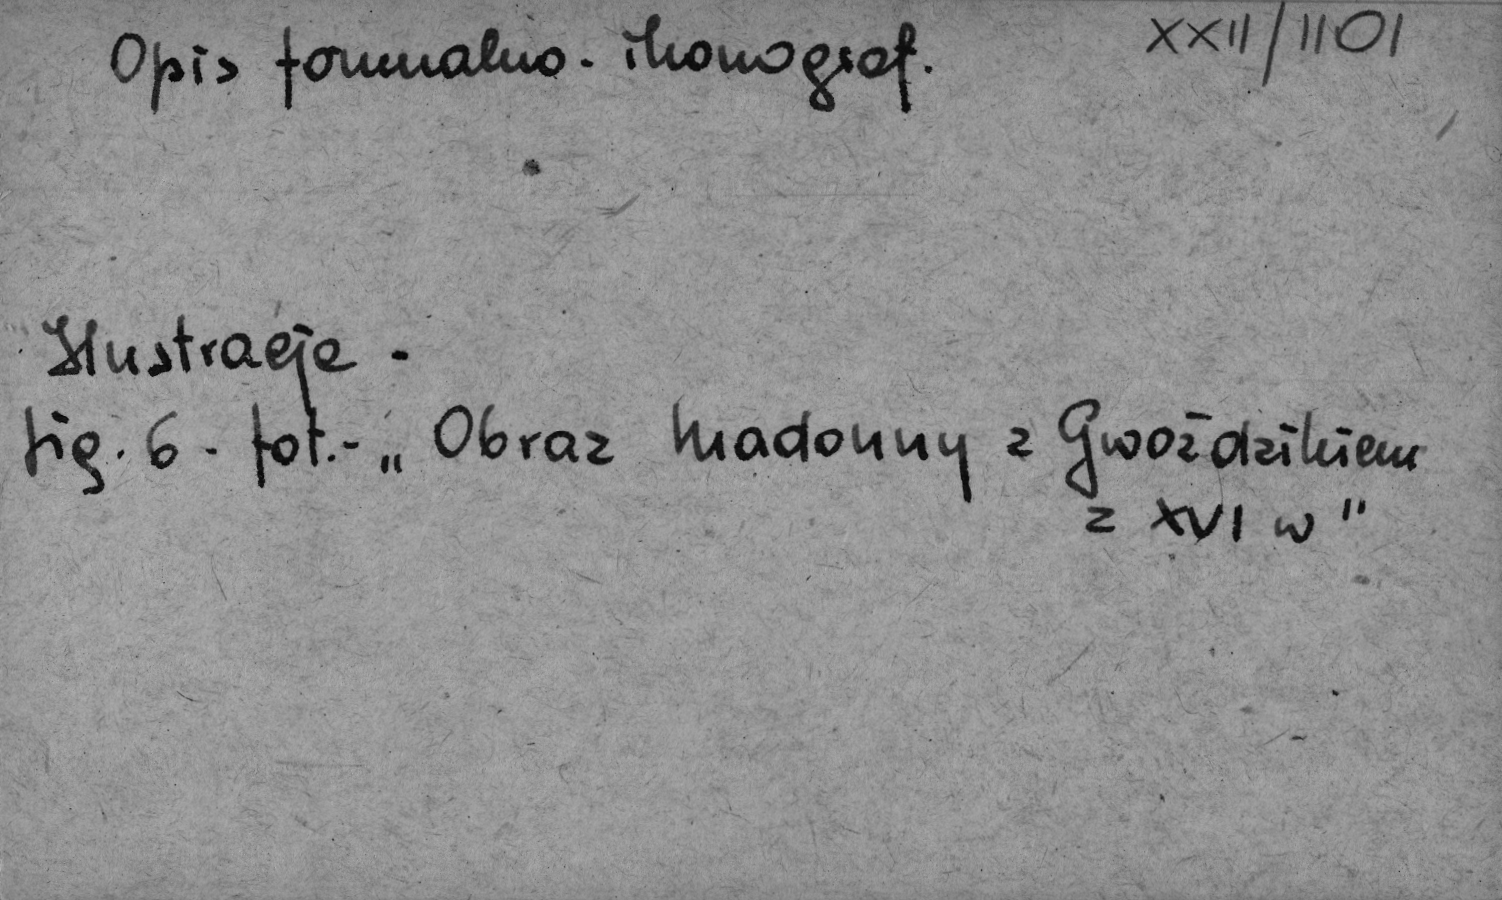 Opis formalno - ikonograf. XXII/1101
Ilustracje -
fig. 6 - fot. - „Obraz Madonny z Gwoździkiem
z XVI w"